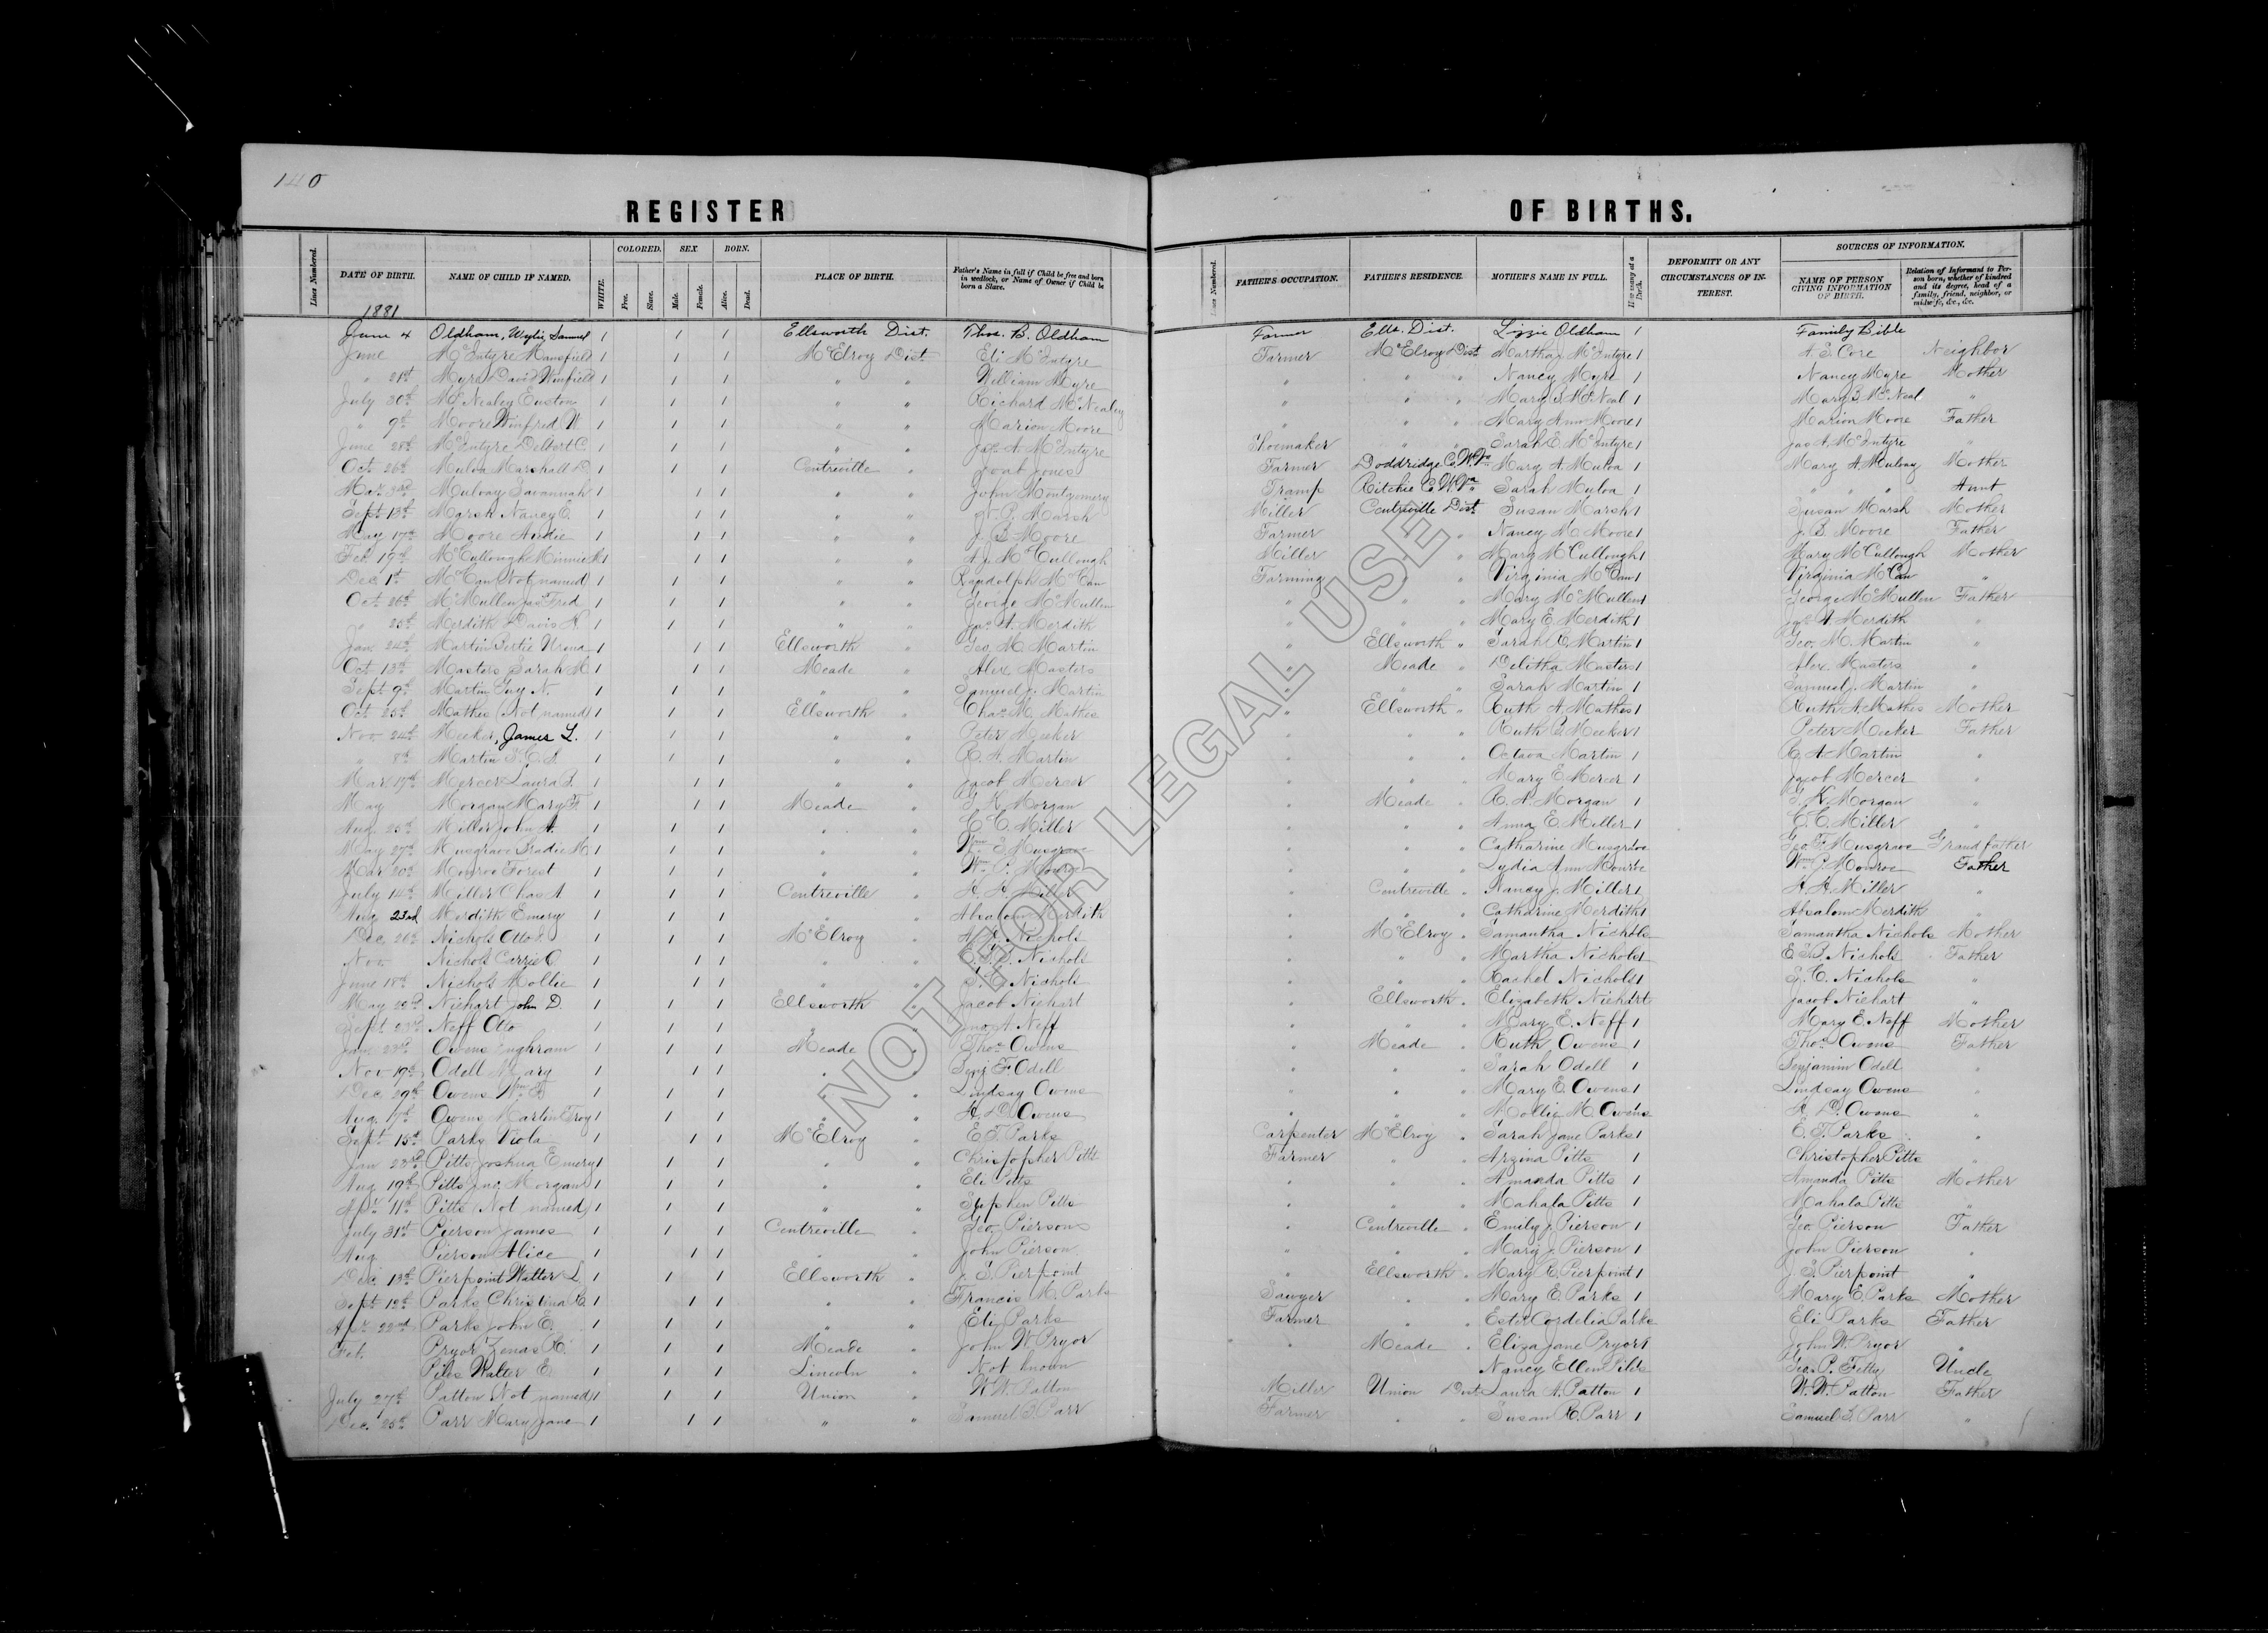 140
REGISTER OF BIRTHS.
Lines Numbered. DATE OF BIRTH. NAME OF CHILD IF NAMED. WHITE. COLORED. Free. Slave. SEX. Male. Female. BORN. Alive. Dead. PLACE OF BIRTH. Father's Name in full if Child be free and born in wedlock, or Name of Owner if Child be born a Slave. Lines Numbered. FATHER'S OCCUPATION. FATHER'S RESIDENCE. MOTHER'S NAME IN FULL. How many at a Birth. DEFORMITY OR ANY CIRCUMSTANCES OF INTEREST. SOURCES OF INFORMATION. NAME OF PERSON GIVING INFORMATION OF BIRTH. Relation of Informant to Person born, whether of kindred and its degree, head of a family, friend, neighbor, or midwife, &c., &c.
1881
June 4 Oldham, Wylie Samuel 1 1 1 Ellsworth Dist. Thos. B. Oldham Farmer Ells. Dist. Lizzie Oldham 1 Family Bible
June McIntyre Mansfield 1 1 1 McElroy Dist. Eli McIntyre Farmer McElroy Dist Martha J. McIntyre 1 A. S. Core Neighbor
" 21st Myre David Winfield 1 1 1 " " William Myre " " " Nancy Myre 1 Nancy Myre Mother
July 30th McNealey Euston 1 1 1 " " Richard McNealey " " " Mary B. McNeal 1 Mary B McNeal "
" 9th Moore Winfred W. 1 1 1 " " Marion Moore " " " Mary Ann Moore 1 Marion Moore Father
June 28th McIntyre Delbert C. 1 1 1 " " Jas A. McIntyre Shoemaker " " Sarah E. McIntyre 1 Jas A. McIntyre "
Oct. 26th Mulva Marshall D. 1 1 1 Centreville " Joab Jones Farmer Doddridge Co W.Va Mary A. Mulva 1 Mary A. Mulvay Mother
Mar. 3rd Mulvay Savannah 1 1 1 " " John Montgomery Tramp Ritchie Co W.Va Sarah Mulva 1 " " " Aunt
Sept 13th Marsh Nancy E. 1 1 1 " " P. Marsh Miller Centreville Dist Susan Marsh 1 Susan Marsh Mother
May 17th Moore Addie 1 1 1 " " J. B. Moore Farmer " " Nancy M. Moore 1 J. B. Moore Father
Feb 19th McCullough Minnie 1 1 1 " " A. J. McCullough Miller " " Mary McCullough 1 Mary McCullough Mother
Dec 1st McCan (Not named) 1 1 1 " " Randolph McCan Farming " " Virginia McCan 1 Virginia McCan "
Oct. 26th McMullen Jas Fred 1 1 1 " " George McMullen " " " Mary McMullen 1 George McMullen Father
" 25th Merdith Davis H. 1 1 1 " " Jas. A. Merdith " " " Mary E. Merdith 1 Jas A Merdith "
Jan. 24th Martin Bertie Urena 1 1 1 Ellsworth " Geo. M. Martin " Ellsworth " Sarah C. Martin 1 Geo. M. Martin "
Oct. 13th Masters Sarah M. 1 1 1 Meade " Alex. Masters " Meade " Delitha Masters 1 Alex. Masters "
Sept 9th Martin Guy N. 1 1 1 " " Samuel J. Martin " " " Sarah Martin 1 Samuel J. Martin "
Oct 25th Mathes (Not named) 1 1 1 Ellsworth " Chas. M. Mathes " Ellsworth " Ruth A. Mathes 1 Ruth A. Mathes Mother
Nov 24th Meeker, James L. 1 1 1 " " Peter Meeker " " " Ruth E. Meeker 1 Peter Meeker Father
" 8th Martin S. C. S. 1 1 1 " " R. A. Martin " " " Octava Martin 1 R. A. Martin "
Mar 17th Mercer Laura B. 1 1 1 " " Jacob Mercer " " " Mary E. Mercer 1 Jacob Mercer "
May Morgan Mary F. 1 1 1 Meade " G. K. Morgan " Meade " R. A. Morgan 1 G. K. Morgan "
Aug. 25th Miller John A. 1 1 1 " " C. C. Miller " " " Anna E. Miller 1 C. C. Miller "
May 27th Musgrave Bradie M 1 1 1 " " Wm. E. Musgrave " " " Catharine Musgrave Geo. F. Musgrave Grandfather
Mar 20th Monroe Forest 1 1 1 " " Wm. P. Monroe " " " Lydia Ann Monroe Wm. P. Monroe Father
July 14th Miller Chas A. 1 1 1 Centreville " H. H. Miller " Centreville " Nancy J. Miller 1 H. H. Miller "
Aug 23rd Merdith Emery 1 1 1 " " Absalom Merdith " " " Catharine Merdith 1 Absalom Merdith "
Dec 26th Nichols Otto 1 1 1 McElroy " Nichols " McElroy " Samantha Nichols Samantha Nichols Mother
Nov. Nichols Carrie O. 1 1 1 " " E. B. Nichols " " " Martha Nichols 1 E. B. Nichols Father
June 18th Nichols Mollie 1 1 1 " " S. C. Nichols " " " Rachel Nichols 1 S. C. Nichols "
May 22nd Niehart John D. 1 1 1 Ellsworth " Jacob Niehart " Ellsworth " Elizabeth Niehart Jacob Niehart "
Sept 23rd Neff Otto 1 1 1 " " Jno. A. Neff " " " Mary E. Neff 1 Mary E. Neff Mother
Jan. 23rd Owens Inghram 1 1 1 Meade " Thos Owens " Meade " Ruth Owens 1 Thos Owens Father
Nov 19th Odell Mary 1 1 1 " " Benj F Odell " " " Sarah Odell 1 Benjamin Odell "
Dec 29th Owens Wm. F. 1 1 1 " " Lindsay Owens " " " Mary E. Owens 1 Lindsay Owens "
Aug. 17th Owens Martin Troy 1 1 1 " " H. D. Owens " " " Mollie M. Owens H. D. Owens "
Sept 15th Parks Viola 1 1 1 McElroy " E. T. Parks Carpenter McElroy " Sarah Jane Parks 1 E. T. Parks "
Jan 23rd Pitts Joshua Emery 1 1 1 " " Christopher Pitts Farmer " " Arzina Pitts 1 Christopher Pitts "
Aug 19th Pitts Jas. Morgan 1 1 1 " " Eli Pitts " " " Amanda Pitts 1 Amanda Pitts Mother
Apr. 11th Pitts (Not named) 1 1 1 " " Stephen Pitts " " " Mahala Pitts 1 Mahala Pitts "
July 31st Pierson James 1 1 1 Centreville " Geo. Pierson " Centreville " Emily J. Pierson 1 Geo. Pierson Father
Aug Pierson Alice 1 1 1 " " John Pierson " " " Mary J. Pierson 1 John Pierson "
Dec. 13th Pierpoint Walter L. 1 1 1 Ellsworth " J. S. Pierpoint " Ellsworth " Mary R. Pierpoint 1 J. S. Pierpoint "
Sept 12th Parks Christina R. 1 1 1 " " Francis M. Parks Sawyer " " Mary E. Parks 1 Mary E. Parks Mother
Apr. 22nd Parks John E. 1 1 1 " " Eli Parks Farmer " " Ester Cordelia Parks Eli Parks Father
Feb. Pryor Zenas R. 1 1 1 Meade " John W. Pryor " Meade " Eliza Jane Pryor 1 John W. Pryor "
Piles Walter E. 1 1 1 Lincoln " Not known Nancy Ellen Piles Geo. P. Fetty Uncle
July 27th Patton Not named 1 1 1 Union " W. W. Patton Miller Union Dist Laura A. Patton 1 W. W. Patton Father
Dec. 25th Parr Mary Jane 1 1 1 " " Samuel B. Parr Farmer " " Susan R. Parr 1 Samuel B. Parr "
NOT FOR LEGAL USE